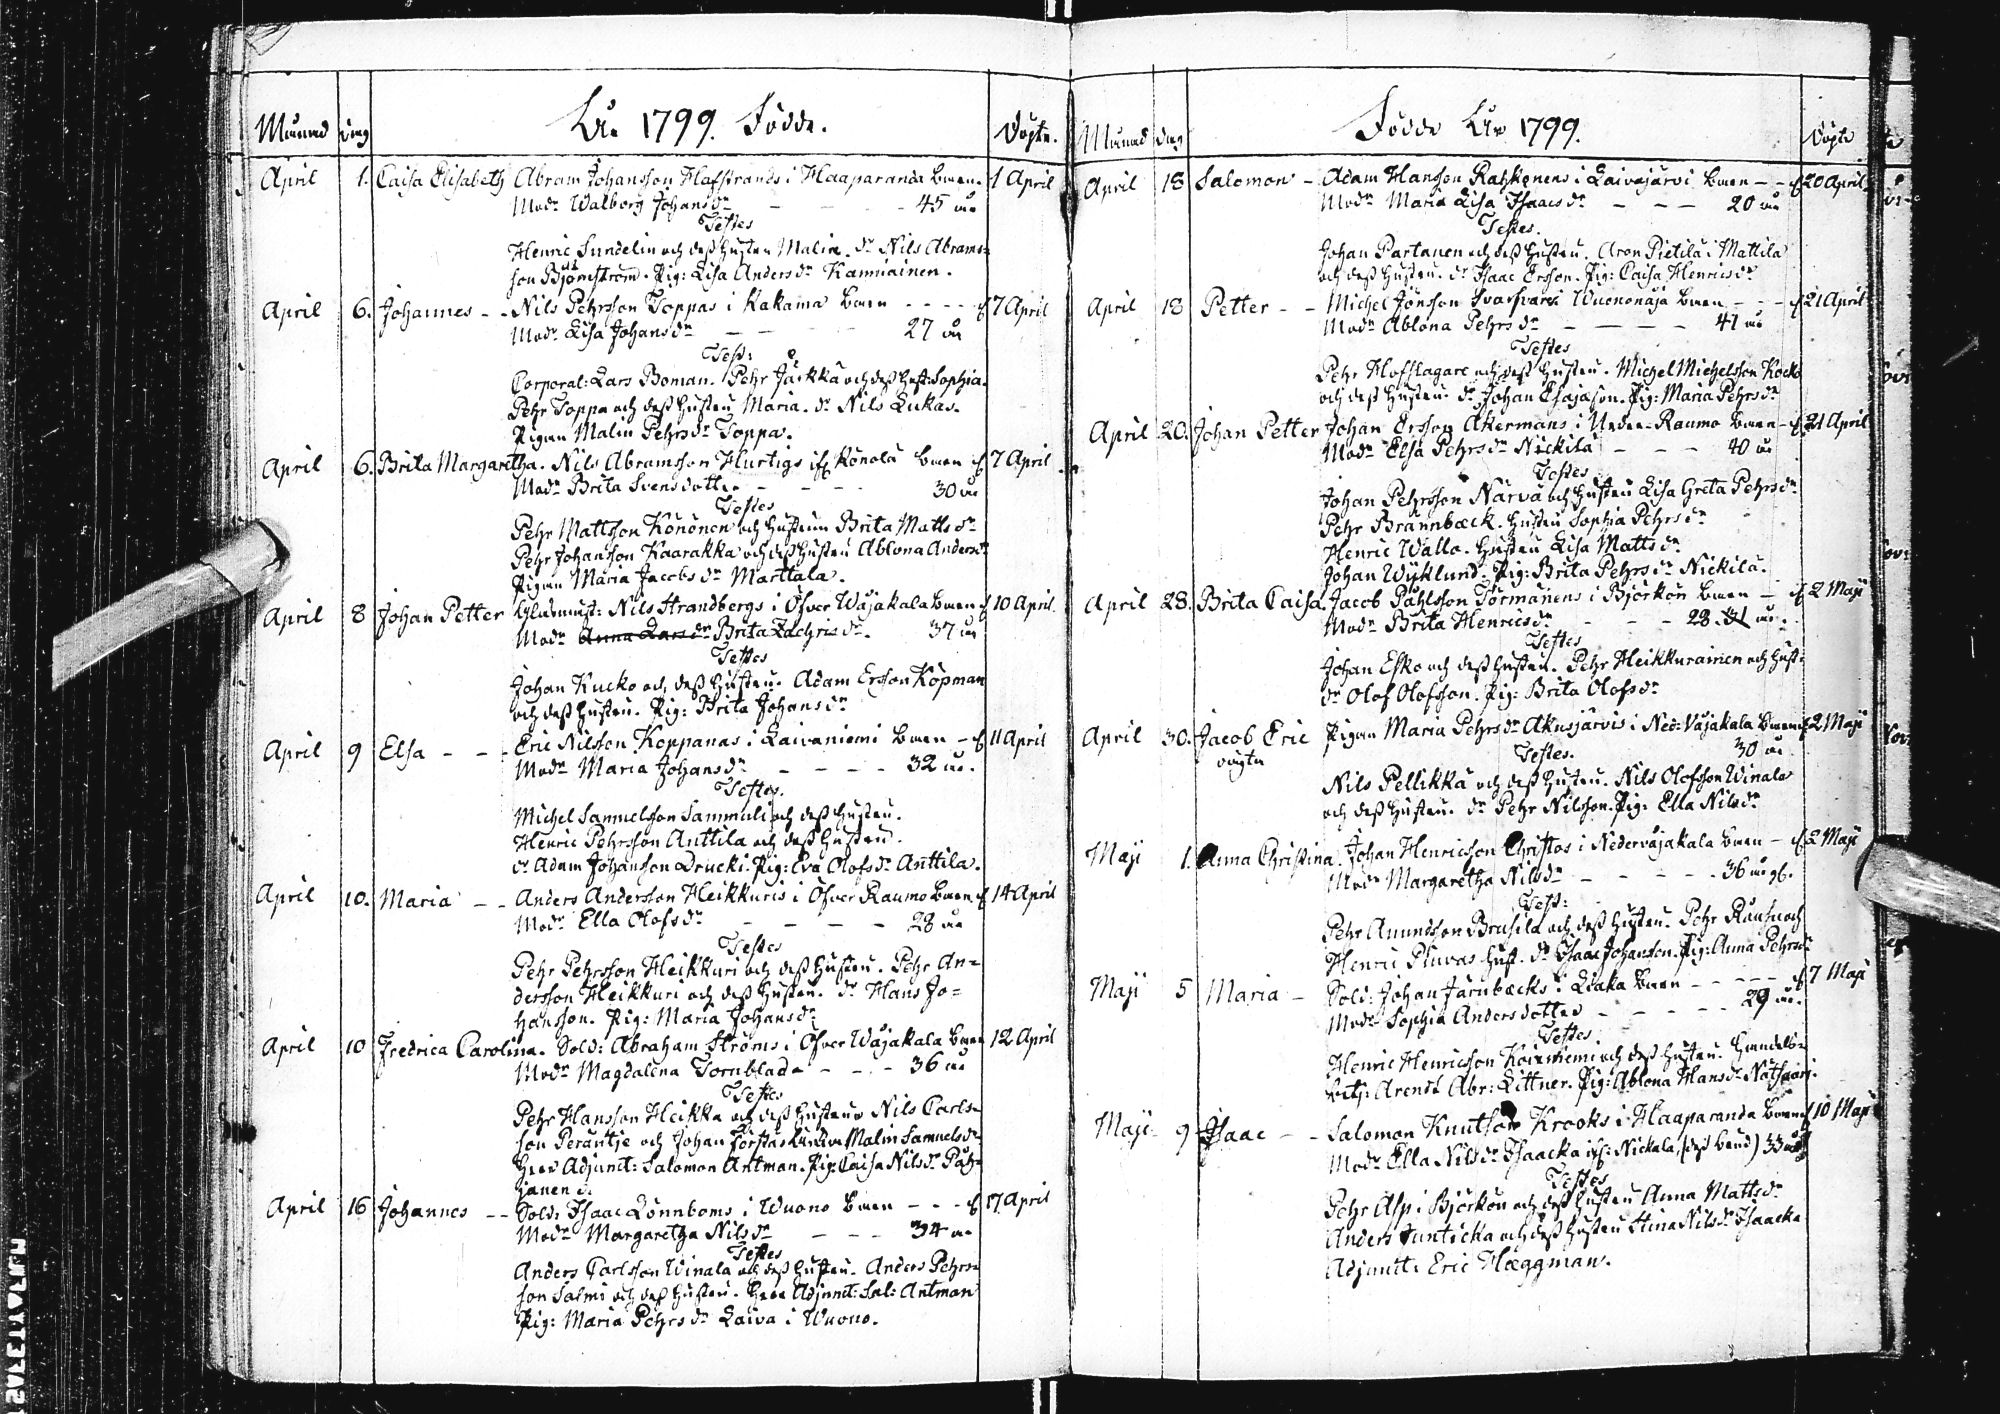 Månad Dag År 1799. Födde. Döpte.
April 1. Caisa Elisabeth Abram Johansson Hafstrands i Haaparanda Barn. 1 April
Modr Walborg Johansdr - - - 45 år
Testes
Henric Sundelin och dess hustru Malin. dr Nils Abrams-
son Björnström. Pig: Lisa Andersdr Kamiainen.
April 6. Johannes - - Nils Pehrsson Toppas i Kakama Barn - - - - f 7 April
Modr Lisa Johansdr - - - 27 år
Test:
Corporal: Lars Boman. Pehr Jäckkä och dess hust: Sophia.
Pehr Toppa och dess hustru Maria. dr Nils Lukas.
Pigan Malin Pehrsdr Toppa.
April 6. Brita Margaretha. Nils Abramsson Hurtigs if Könölä Barn f 7 April
Modr Brita Svensdotter - - - 30 år
Testes
Pehr Mattsson Könönen och hustrun Brita Mattsdr
Pehr Johansson Kaarakka och dess hustru Ablona Andersdr
Pigan Maria Jacobsdr Marttala.
April 8 Johan Petter Glasmäst: Nils Strandbergs i Öfver Wäjakala Barn f 10 April
Modr Anna Larsdr Brita Zachrisdr. 37 år
Testes
Johan Kucko och dess hustru. Adam Ersson Köpman
och dess hustru. Pig: Brita Johansdr
April 9 Elsa - - - Eric Nilsson Koppanas i Laivaniemi Barn - f 11 April
Modr Maria Johansdr - - - - 32 år.
Testes.
Michel Samuelsson Sammuli och dess hustru.
Henric Pehrsson Anttila och dess hustru.
dr Adam Johansson Drucki. Pig: Eva Olofsdr Anttila.
April 10. Maria - - Anders Andersson Heikkuris i Öfver Raumo Barn f 14 April
Modr Ella Olofsdr - - - - 28 år
Testes
Pehr Pehrsson Heikkuri och dess hustru. Pehr An-
dersson Heikkuri och dess hustru. dr Hans Jo-
hansson. Pig: Maria Johansdr
April 10 Fredrica Carolina. Sold: Abraham Ströms i Öfver Wäjakala Barn 12 April
Modr Magdalena Törnblad - - - 36 år
Testes
Pehr Hansson Heikka och dess hustru Nils Carls-
son Peräntje och Johan Malin Samuelsdr
Herr Adjunct: Salomon Antman. Pig: Caisa Nilsdr Pät-
janen
April 16 Johannes - - Sold: Isaac Lönnboms i Wuono Barn - - - f 17 April
Modr Margaretha Nilsdr - - - 34 år
Testes
Anders Carlsson Winala och dess hustru. Anders Pehrs-
son Salmi och dess hustru. Herr Adjunct: Sal: Antman
Pig: Maria Pehrsdr Laiva i Wuono.
Månad Dag Födde År 1799. Döpte
April 18 Salomon - Adam Hansson Rahkonens i Laivajärvi Barn - - f 20 April
Modr Maria Lisa Isaacsdr - - - 20 år
Testes.
Johan Partanen och dess hustru. Aron Pietilä i Mattila
och dess hustru. dr Isaac Ersson. Pig: Caisa Henricsdr
April 18 Petter - - Michel Jönsson Svarfvars Wuononäjä Barn - - - f 21 April
Modr Ablona Pehrsdr - - - - 41 år
Testes
Pehr Hofslagare och dess hustru. Michel Michelsson Kock
och dess hustru. dr Johan Esajason. Pig: Maria Pehrsdr
April 20. Johan Petter Johan Ersson Åkermans i Neder-Raumo Barn - f 21 April
Modr Elsa Pehrsdr Nickilä - - - 40 år
Testes
Johan Pehrsson Närvä och hustru Lisa Greta Pehrsdr
Pehr Brännbæck. hustru Sophia Pehrsdr
Henric Wallo. hustru Lisa Mattsdr
Johan Wijklund. Pig: Brita Pehrsdr Nickilä.
April 28. Brita Caisa. Jacob Påhlsson Törmänens i Björkön Barn - f 2 Maji
Modr Brita Henricsdr - - - 28. 31 år.
Testes
Johan Esko och dess hustru. Pehr Heikkurainen och hust:
dr Olof Olofsson. Pig: Brita Olofsdr
April 30. Jacob Eric Pigan Maria Pehrsdr Akusjärvis i Ned: Wäjakala Barn f 2 Maji
oägta Testes. 30 år
Nils Pellikka och dess hustru. Nils Olofsson Winala
och dess hustru. dr Pehr Nilsson. Pig: Ella Nilsdr
Maji 1. Anna Christina. Johan Henricsson Christos i Nederväjakala Barn - f 2 Maji
Modr Margaretha Nilsdr - - - - 36 år
Test:
Pehr Anundsson Brusila och dess hustru. Pehr Rautu och
Henric Pluvas hust. dr Isaac Johansson. Pig: Anna Pehrsdr
Maji 5 Maria - Sold: Johan Järnbæcks i Liaka Barn - - - - f 7 Maji
Modr Sophia Andersdotter - - - - 29 år.
Testes.
Henric Henricsson Koivuniemi och dess hustru. Handels-
betj: Arendt Abr: Littner. Pig: Ablona Hansdr
Maji 9 Isaac - - Salomon Knutsson Krooks i Haaparanda Barn f 10 Maji
Modr Ella Nilsdr Isaacka if: Nickala, (dess brud) 33 år
Testes
Pehr Asp i Björkön och dess hustru Anna Mattsdr
Anders Juntikka och dess hustru Stina Nilsdr Isaacka
Adjunct: Eric Hæggman.